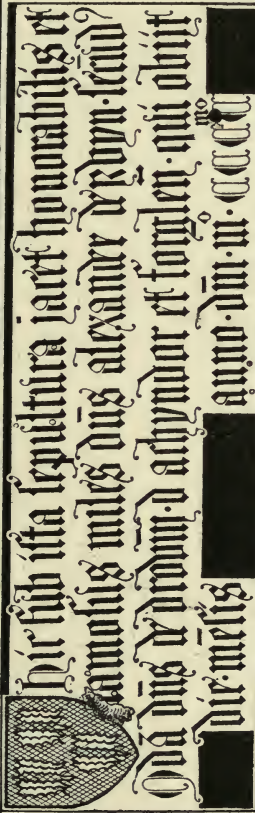 Hic sub ista sepultura iacet honorabilis et
famosus miles dn̄s alexander
Qdā dn̄s d droum d achyndor et forglen · qui obiit
die mēsis anno · dn̄i · m° · cccc mo